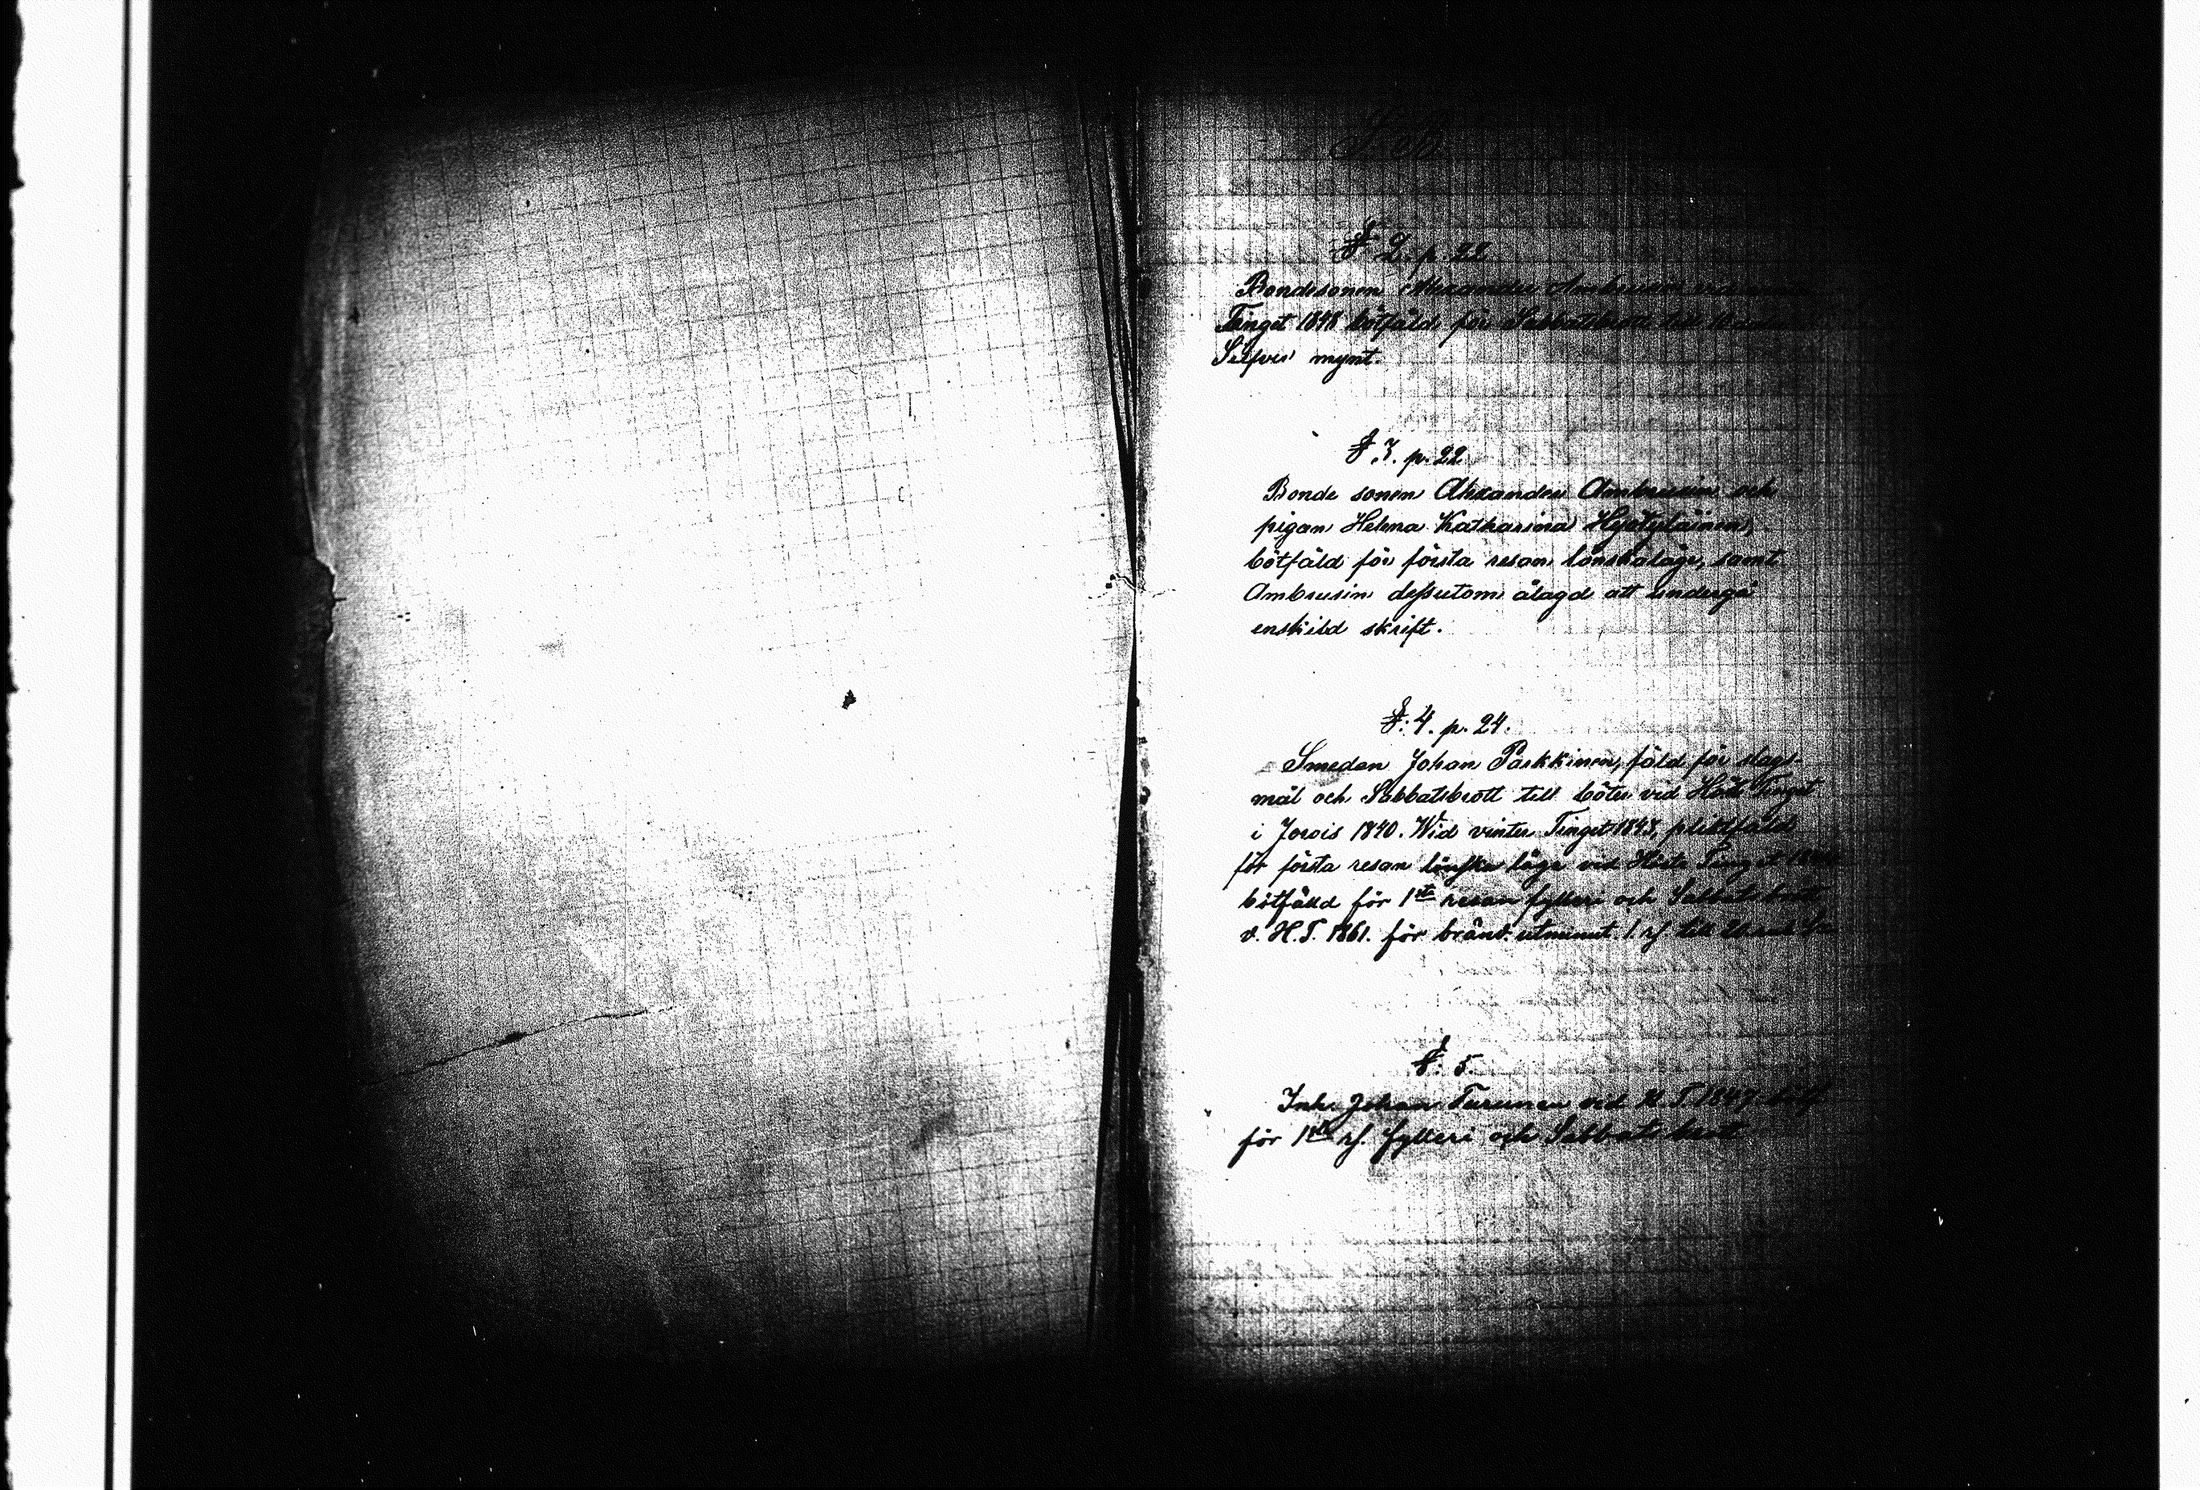 § 2. p. 22
Bondesonen Alexander Ambrusin
Tinget 1848 bötfäld för Sabbatsbrott till
Silfver mynt.
§ 3. p. 22
Bonde sonen Alexander Ambrusin och
pigan Helena Katharina Hyötyläinen,
bötfäld för första resan lönskaläge, samt
Ambrusin dessutom ålagd att undergå
enskild skrift.
§: 4. p. 24.
Smeden Johan Parkkinen, fäld för slags-
mål och Sabbatsbrott till böter vid Höste Tinget
i Jorois 1840. Wid vinter Tinget 1843, pliktfäld
för första resan lönska läge vid Höste Tinget
bötfälld för 1sta resan fylleri och Sabbatsbrott
v. H.T. 1861. för bränv. utminut. 1. rs till
§: 5.
Inh. Johan Turunen vid H. T. 1847 bötf
för 1sta rs. fylleri och Sabbatsbrott